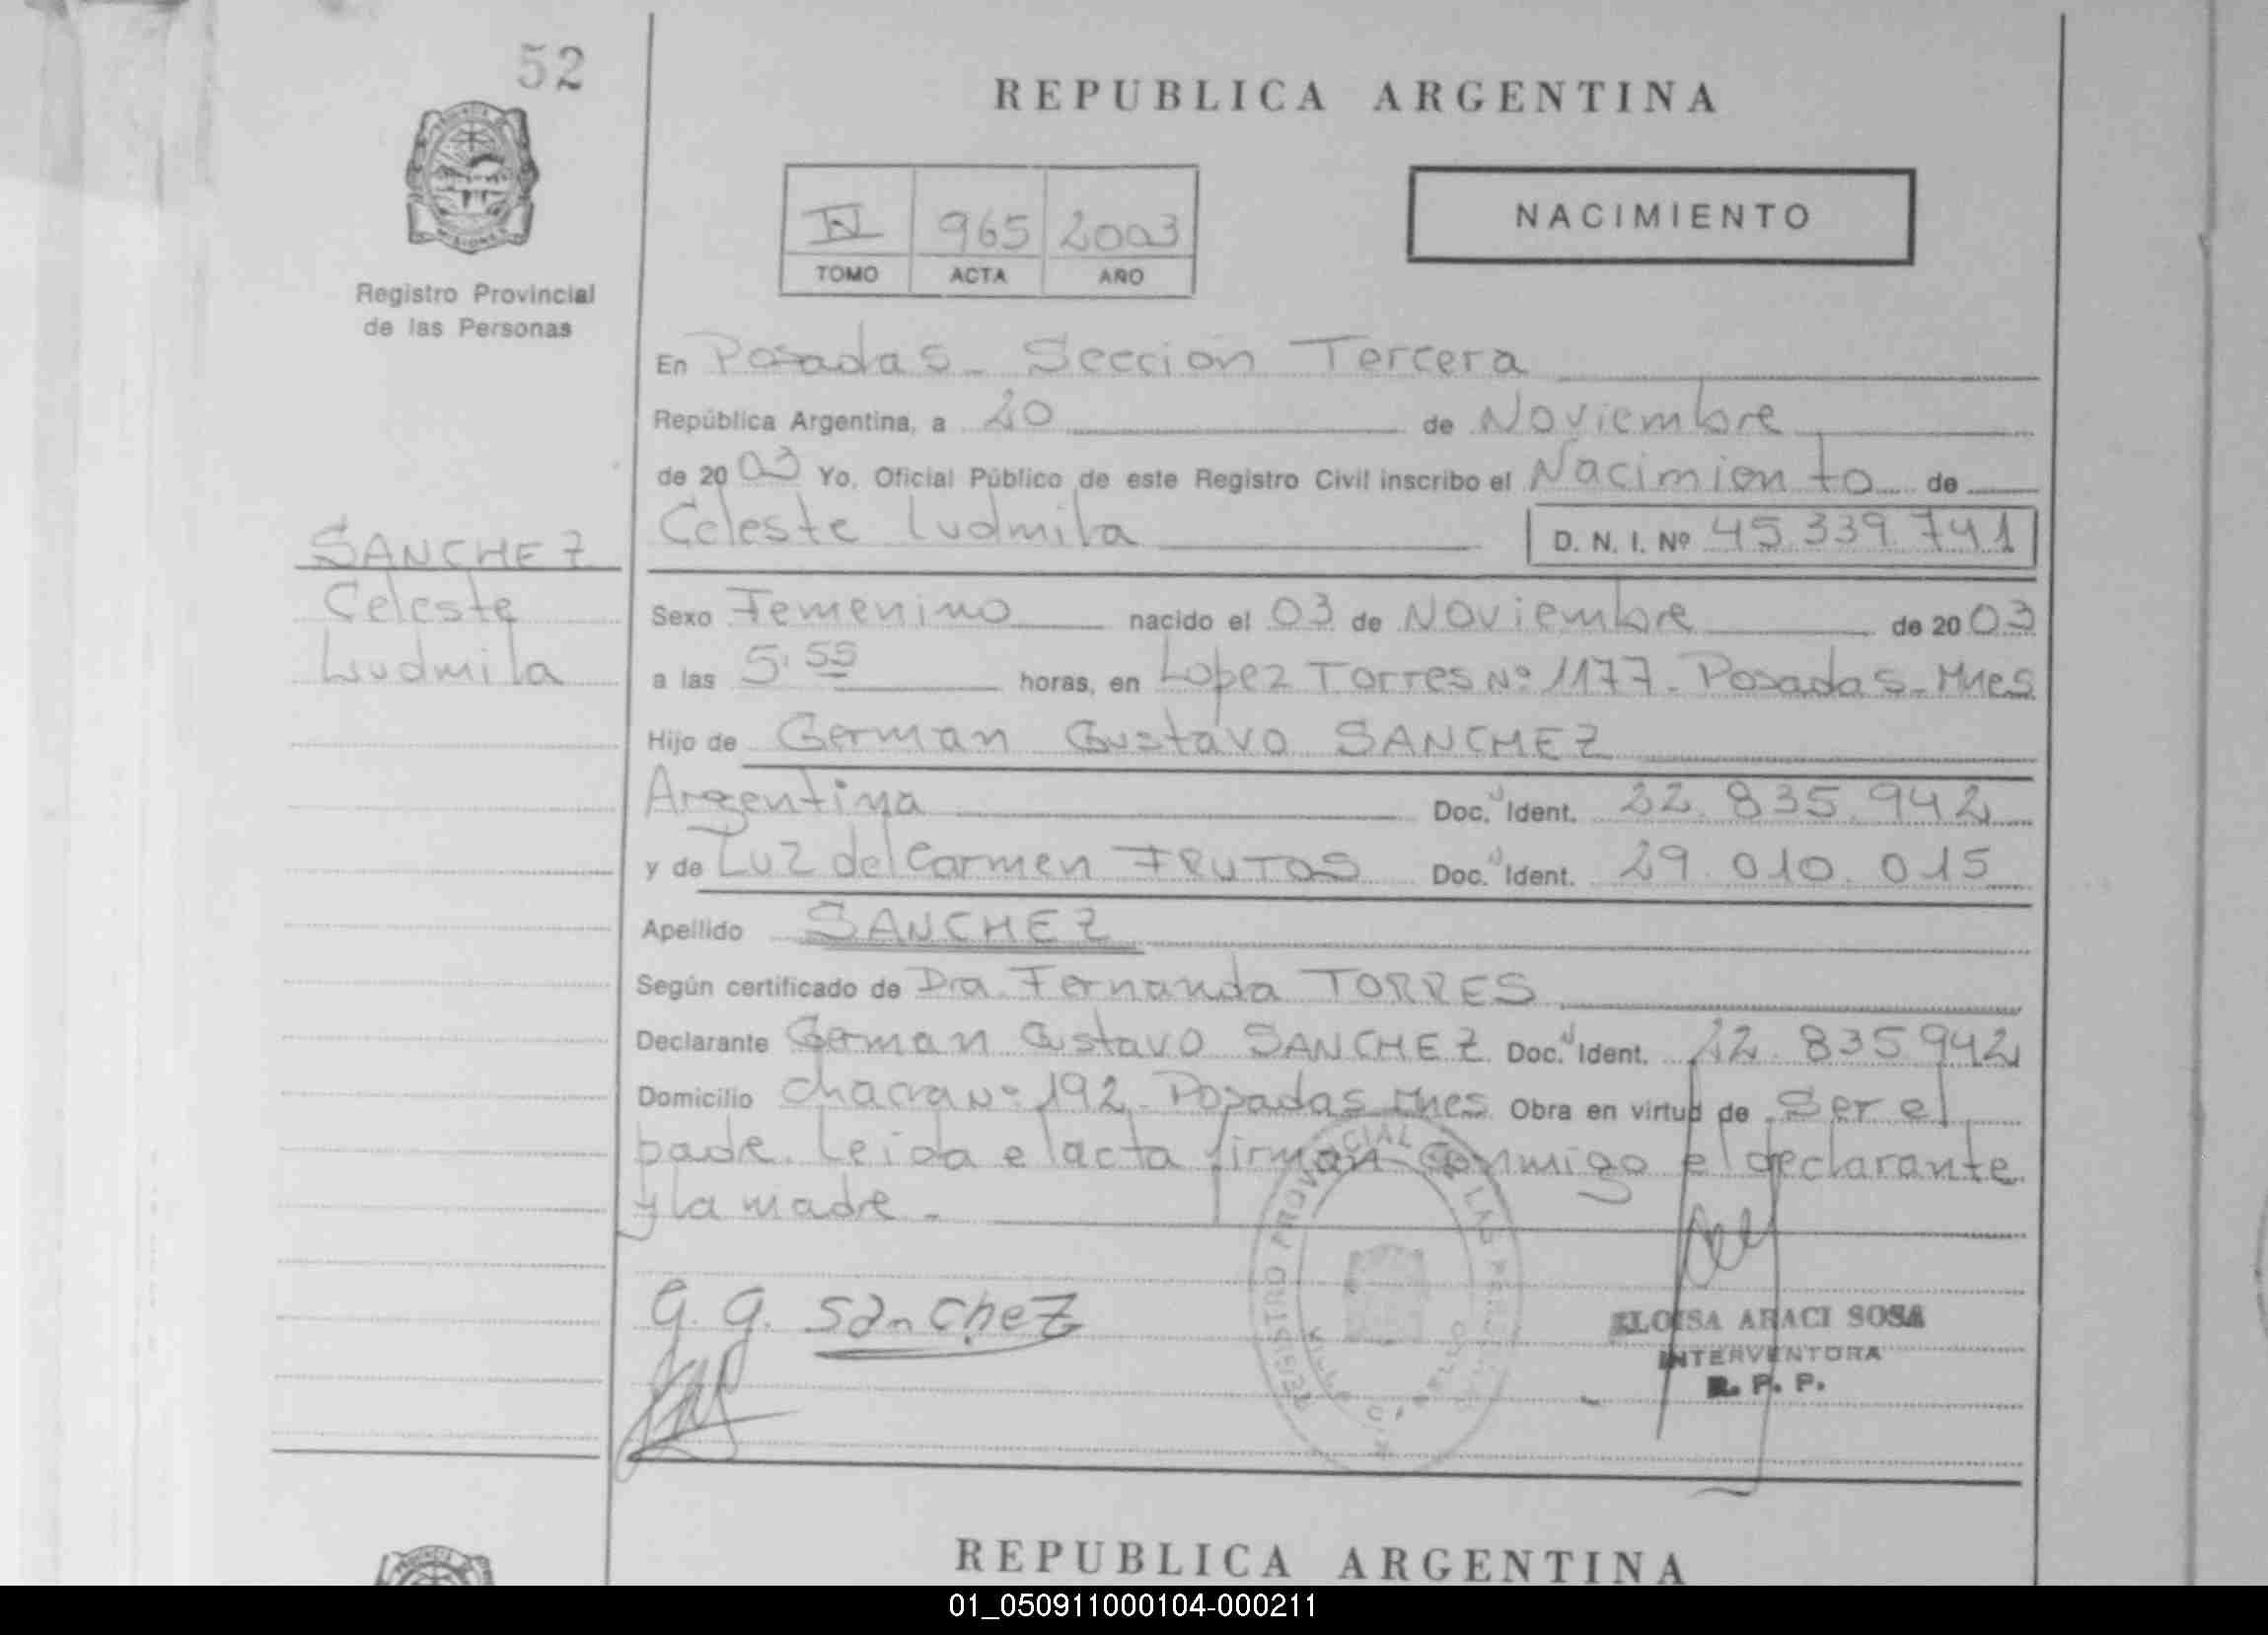 52
REPUBLICA ARGENTINA
NACIMIENTO
965 2003
TOMO ACTA AÑO
Registro Provincial
de las Personas
En Posadas - Seccion Tercera
República Argentina, a 20 de Noviembre
de 2003 Yo, Oficial Público de este Registro Civil inscribo el Nacimiento de
Celeste Ludmila D. N. I. Nº 45.339.741
SANCHEZ
Celeste
Ludmila
Sexo Femenino nacido el 03 de Noviembre de 2003
a las 5:55 horas, en Lopez Torres Nº 1177 - Posadas - Mnes
Hijo de German Gustavo SANCHEZ
Argentina Doc. Ident. 22.835.942
y de Luz del Carmen FRUTOS Doc. Ident. 29.010.015
Apellido SANCHEZ
Según certificado de Dra. Fernanda TORRES
Declarante German Gustavo SANCHEZ Doc. Ident. 22.835942
Domicilio Chacra Nº 192 - Posadas Mnes Obra en virtud de Ser el
padre. Leida el acta firman conmigo el declarante
y la madre -
G. G. Sanchez
REGISTRO PROVINCIAL DE LAS PERSONAS
ELOISA ARACI SOSA
INTERVENTORA
R. P. P.
REPUBLICA ARGENTINA
01_050911000104-000211